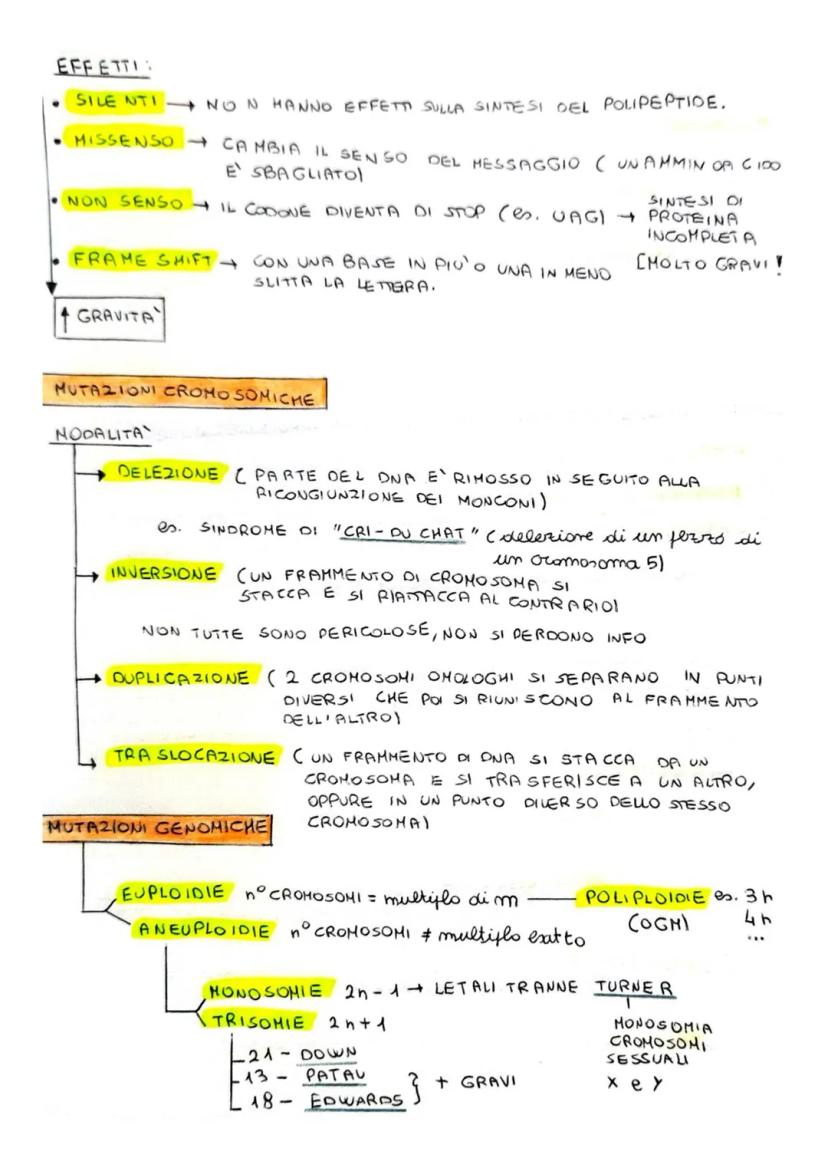 EFFETTI:
• SILENTI → NON HANNO EFFETTI SULLA SINTESI DEL POLIPEPTIDE.
• MISSENSO → CAMBIA IL SENSO DEL MESSAGGIO ( UN AMMINOACIDO
E' SBAGLIATO)
• NON SENSO → IL CODONE DIVENTA DI STOP (es. UAG) → SINTESI DI
PROTEINA
INCOMPLETA
• FRAME SHIFT → CON UNA BASE IN PIU' O UNA IN MENO [MOLTO GRAVI!
SLITTA LA LETTERA.
↑ GRAVITA'
MUTAZIONI CROMOSOMICHE
NODALITA'
→ DELEZIONE ( PARTE DEL DNA E' RIMOSSO IN SEGUITO ALLA
RICONGIUNZIONE DEI MONCONI)
es. SINDROME DI "CRI-DU CHAT" (delezione di un pezzo di
un cromosoma 5)
→ INVERSIONE (UN FRAMMENTO DI CROMOSOMA SI
STACCA E SI RIATTACCA AL CONTRARIO)
NON TUTTE SONO PERICOLOSE, NON SI PERDONO INFO
→ DUPLICAZIONE ( 2 CROMOSOMI OMOLOGHI SI SEPARANO IN PUNTI
DIVERSI CHE POI SI RIUNISCONO AL FRAMMENTO
DELL'ALTRO)
→ TRASLOCAZIONE ( UN FRAMMENTO DI DNA SI STACCA DA UN
CROMOSOMA E SI TRASFERISCE A UN ALTRO,
OPPURE IN UN PUNTO DIVERSO DELLO STESSO
CROMOSOMA)
MUTAZIONI GENOMICHE
EUPLOIDIE n° CROMOSOMI = multiplo di n — POLIPLOIDIE es. 3n
(OGM) 4n
...
ANEUPLOIDIE n° CROMOSOMI ≠ multiplo esatto
MONOSOMIE 2n-1 → LETALI TRANNE TURNER
MONOSOMIA
CROMOSOMI
SESSUALI
X e Y
TRISOMIE 2n+1
21 - DOWN
13 - PATAU
18 - EDWARDS } + GRAVI